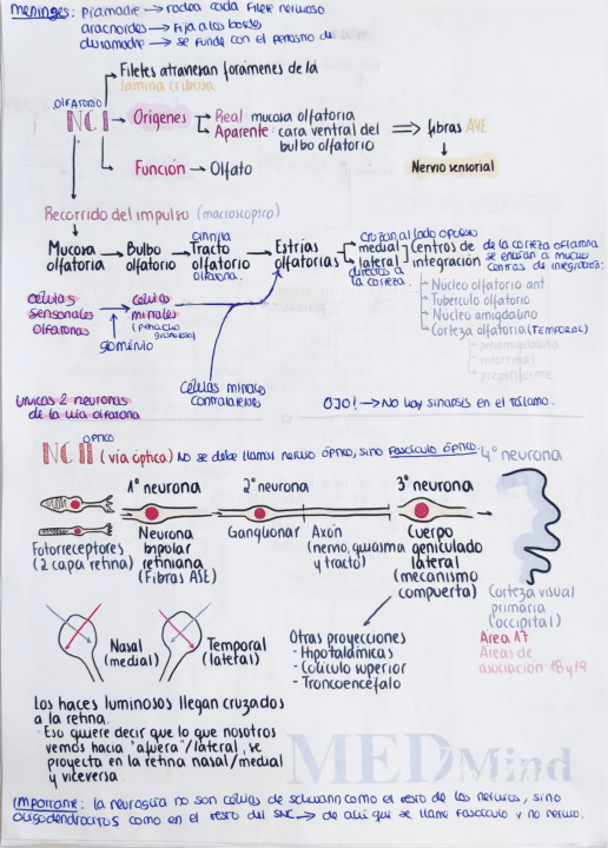 meninges: piamadre → rodea cada filete nervioso
aracnoides → fija a los bordes
duramadre → se funde con el periostio de
Filetes atraviesan forámenes de la
lamina cribosa
OLFATORIO
NC I → Orígenes
Real: mucosa olfatoria
Aparente: cara ventral del
bulbo olfatorio
⇒ fibras AVE
Nervio sensorial
Función → Olfato
Recorrido del impulso (macroscópico)
Mucosa olfatoria → Bulbo olfatorio → Cintilla Tracto olfatorio olfatoria. → Estrías olfatorias
cruzan al lado opuesto
medial
lateral
directas a
la corteza.
Centros de
integración
de la corteza olfatoria
se envían a muchos
centros de integración:
Núcleo olfatorio ant
Tubérculo olfatorio
Núcleo amigdalino
Corteza olfatoria (TEMPORAL)
periamigdalina
entorrinal
prepiriforme
células
sensoriales
olfatorias
→ células
mitrales
(penacho
granulosa)
glomérulo
Células mitrales
contralaterales
Unicas 2 neuronas
de la vía olfatoria
OJO! → No hay sinapsis en el tálamo.
ÓPTICO
NC II (vía óptica) No se debe llamar nervio óptico, sino fascículo óptico.
4° neurona
1° neurona 2° neurona 3° neurona
Fotorreceptores
(2 capa retina)
Neurona
bipolar
retiniana
(Fibras ASE)
Ganglionar
Axón
(nervio, quiasma
y tracto)
Cuerpo
geniculado
lateral
(mecanismo
compuerta)
Corteza visual
primaria
(occipital)
Área 17
Áreas de
asociación: 18 y 19
Nasal
(medial)
Temporal
(lateral)
Otras proyecciones
- Hipotalámicas
- Colículo superior
- Troncoencéfalo
Los haces luminosos llegan cruzados
a la retina.
· Eso quiere decir que lo que nosotros
vemos hacia "afuera"/lateral, se
proyecta en la retina nasal/medial
y viceversa
MEDMind
Importante: la neuroglia no son células de schwann como el resto de los nervios, sino
oligodendrocitos como en el resto del SNC → de ahí que se llame fascículo y no nervio.